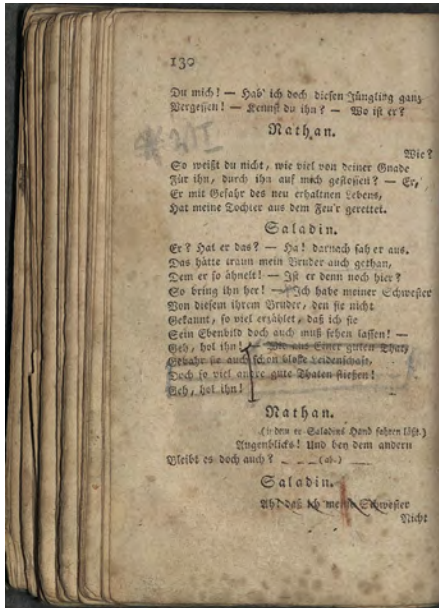 130
Du mich! — Hab' ich doch diesen Jüngling ganz
Vergessen! — Kennst du ihn? — Wo ist er?
Nathan.
Wie?
So weißt du nicht, wie viel von deiner Gnade
Für ihn, durch ihn auf mich geflossen? — Er,
Er mit Gefahr des neu erhaltnen Lebens,
Hat meine Tochter aus dem Feu'r gerettet.
Saladin.
Er? Hat er das? — Ha! darnach sah er aus.
Das hätte traun mein Bruder auch gethan,
Dem er so ähnelt! — Ist er denn noch hier?
So bring ihn her! — Ich habe meiner Schwester
Von diesem ihrem Bruder, den sie nicht
Gekannt, so viel erzählet, daß ich sie
Sein Ebenbild doch auch muß sehen lassen! —
Geh, hol ihn! — Wie aus Einer guten That,
Gebahr sie auch schon bloße Leidenschaft,
Doch so viel andre gute Thaten fließen!
Geh, hol ihn!
Nathan.
(in dem er Saladins Hand fahren läßt.)
Augenblicks! Und bey dem andern
Bleibt es doch auch? (ab.)
Saladin.
Ah! daß ich meine Schwester
Nicht